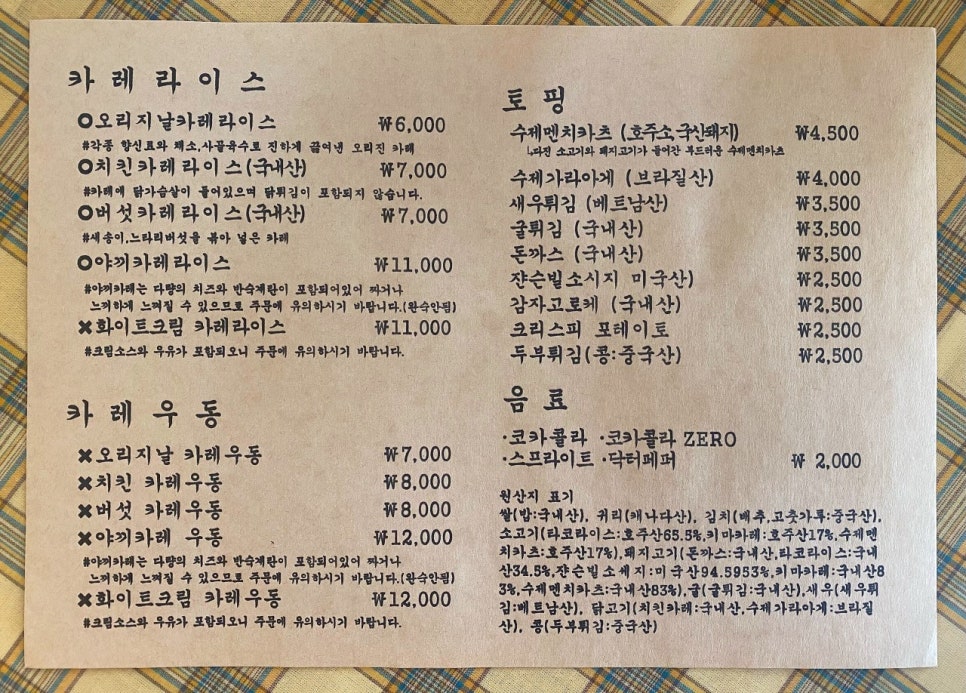 카레라이스
○오리지날카레라이스 ₩6,000
#각종 향신료와 채소,사골육수로 진하게 끓여낸 오리진 카레
○치킨카레라이스(국내산) ₩7,000
#카레에 닭가슴살이 들어있으며 닭튀김이 포함되지 않습니다.
○버섯카레라이스(국내산) ₩7,000
#새송이,느타리버섯을 볶아 넣은 카레
○야끼카레라이스 ₩11,000
#야끼카레는 다량의 치즈와 반숙계란이 포함되어있어 짜거나
느끼하게 느껴질 수 있으므로 주문에 유의하시기 바랍니다.(완숙안됨)
✖화이트크림 카레라이스 ₩11,000
#크림소스와 우유가 포함되오니 주문에 유의하시기 바랍니다.
카레우동
✖오리지날 카레우동 ₩7,000
✖치킨 카레우동 ₩8,000
✖버섯 카레우동 ₩8,000
✖야끼카레 우동 ₩12,000
#야끼카레는 다량의 치즈와 반숙계란이 포함되어있어 짜거나
느끼하게 느껴질 수 있으므로 주문에 유의하시기 바랍니다.(완숙안됨)
✖화이트크림 카레우동 ₩12,000
#크림소스와 우유가 포함되오니 주문에 유의하시기 바랍니다.
토핑
수제멘치카츠 (호주소,국산돼지) ₩4,500
↳다진 소고기와 돼지고기가 들어간 부드러운 수제멘치카츠
수제가라아게 (브라질산) ₩4,000
새우튀김 (베트남산) ₩3,500
굴튀김 (국내산) ₩3,500
돈까스 (국내산) ₩3,500
쟌슨빌소시지 미국산) ₩2,500
감자고로케 (국내산) ₩2,500
크리스피 포테이토 ₩2,500
두부튀김(콩:중국산) ₩2,500
음료
·코카콜라 ·코카콜라 ZERO
·스프라이트 ·닥터페퍼 ₩ 2,000
원산지 표기
쌀(밥:국내산), 귀리(캐나다산), 김치(배추,고춧가루:중국산),
소고기(타코라이스:호주산65.5%,키마카레:호주산17%,수제멘
치카츠:호주산17%),돼지고기(돈까스:국내산,타코라이스:국내
산34.5%,쟌슨빌소세지:미국산94.5953%,키마카레:국내산8
3%,수제멘치카츠:국내산83%),굴(굴튀김:국내산),새우(새우튀
김:베트남산), 닭고기(치킨카레:국내산,수제가라아게:브라질
산), 콩(두부튀김:중국산)